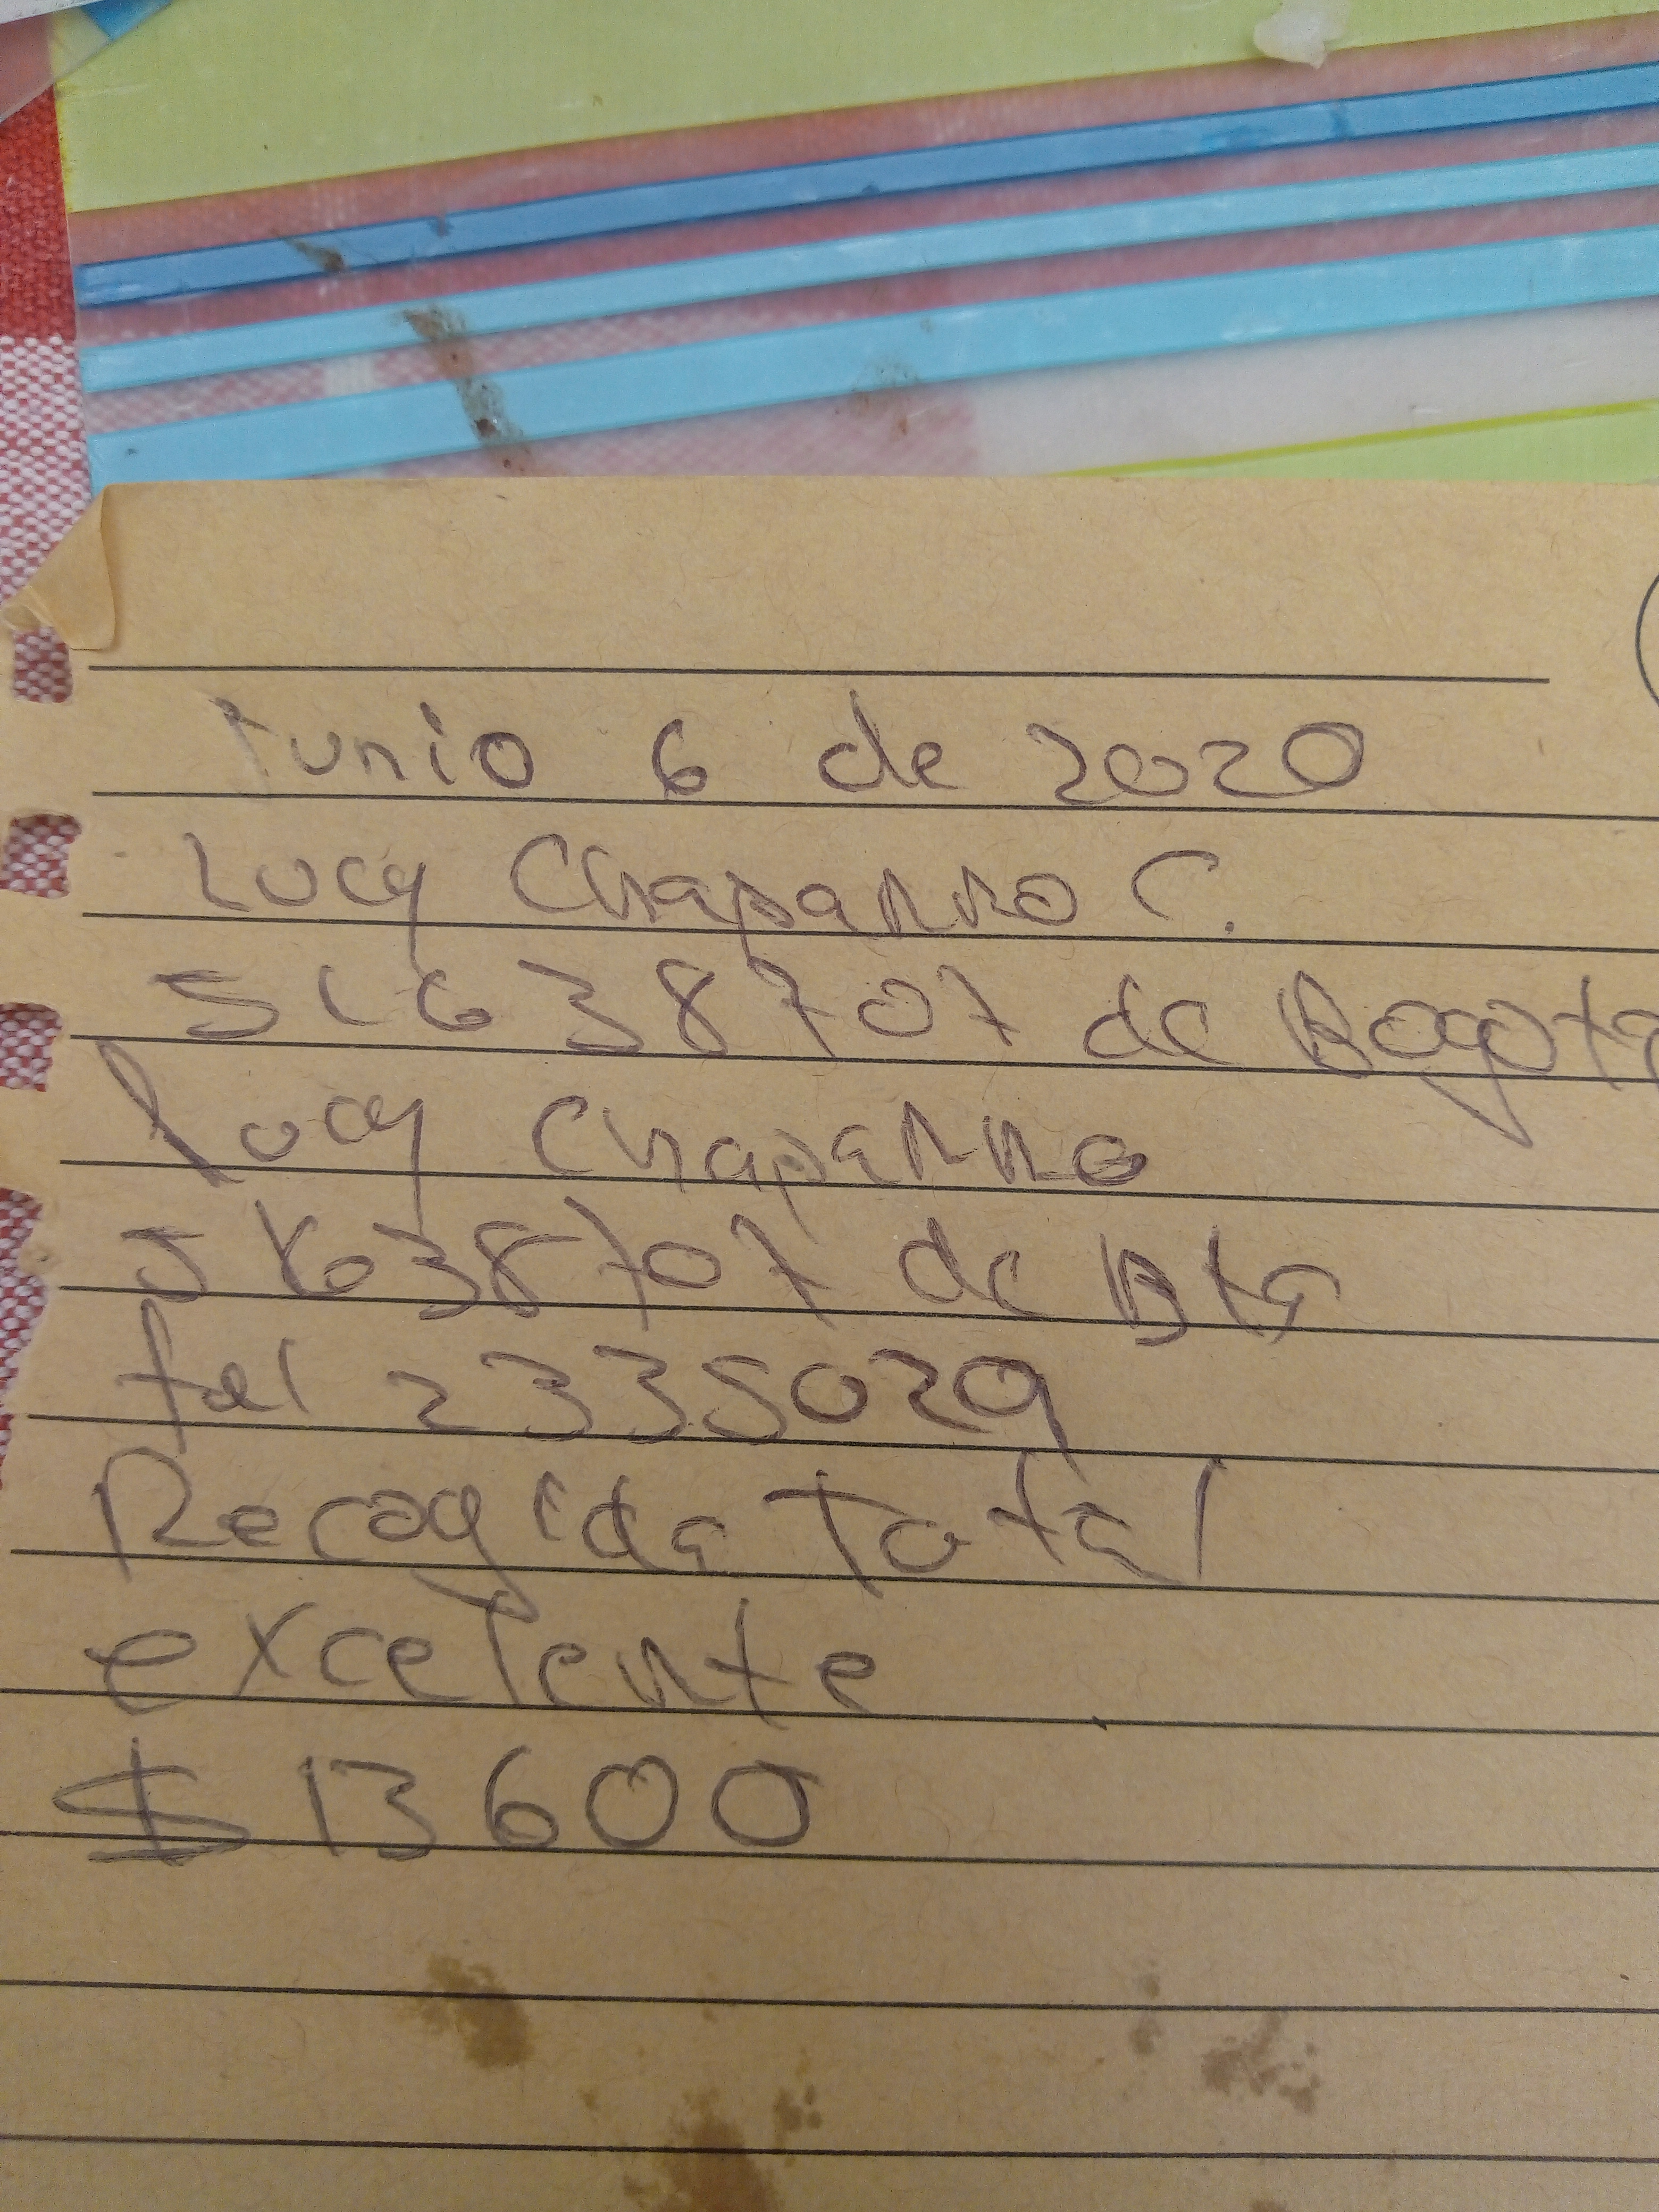 Junio 6 de 2020
Lucy Chaparro C.
51638707 de Bogota
Lucy Chaparro
51638707 de Bta
tel 2335029
Recogida Total
excelente
$ 13600